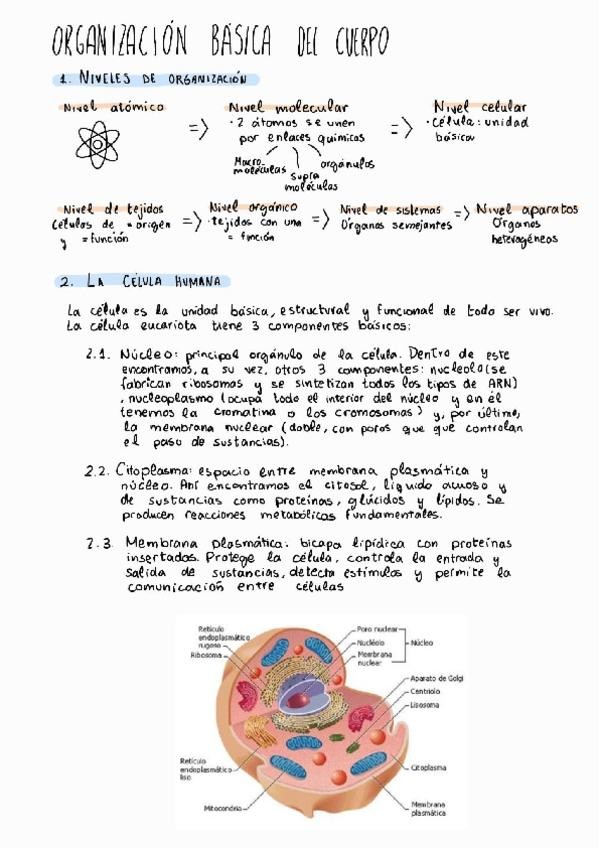 ORGANIZACIÓN BÁSICA DEL CUERPO
1. NIVELES DE ORGANIZACIÓN
Nivel atómico => Nivel molecular => Nivel celular
· 2 átomos se unen
por enlaces químicos
· Célula: unidad
básica
Macro-
moléculas
Supra
moléculas
orgánulos
Nivel de tejidos
Células de = origen
y = función
=> Nivel orgánico
· tejidos con una
= función
=> Nivel de sistemas
Órganos semejantes
=> Nivel aparatos
Órganos
heterogéneos
2. LA CÉLULA HUMANA
La célula es la unidad básica, estructural y funcional de todo ser vivo.
La célula eucariota tiene 3 componentes básicos:
2.1. Núcleo: principal orgánulo de la célula. Dentro de este
encontramos, a su vez, otros 3 componentes: nucleolo (se
fabrican ribosomas y se sintetizan todos los tipos de ARN)
, nucleoplasmo (ocupa todo el interior del núcleo y en él
tenemos la cromatina o los cromosomas) y, por último,
la membrana nuclear (doble, con poros que que controlan
el paso de sustancias).
2.2. Citoplasma: espacio entre membrana plasmática y
núcleo. Ahí encontramos el citosol, líquido acuoso y
de sustancias como proteínas, glúcidos y lípidos. Se
producen reacciones metabólicas fundamentales.
2.3. Membrana plasmática: bicapa lipídica con proteínas
insertadas. Protege la célula, controla la entrada y
salida de sustancias, detecta estímulos y permite la
comunicación entre células
Retículo
endoplasmático
rugoso
Ribosoma
Poro nuclear
Nucléolo
Membrana
nuclear
Núcleo
Aparato de Golgi
Centriolo
Lisosoma
Retículo
endoplasmático
liso
Citoplasma
Mitocondria
Membrana
plasmática